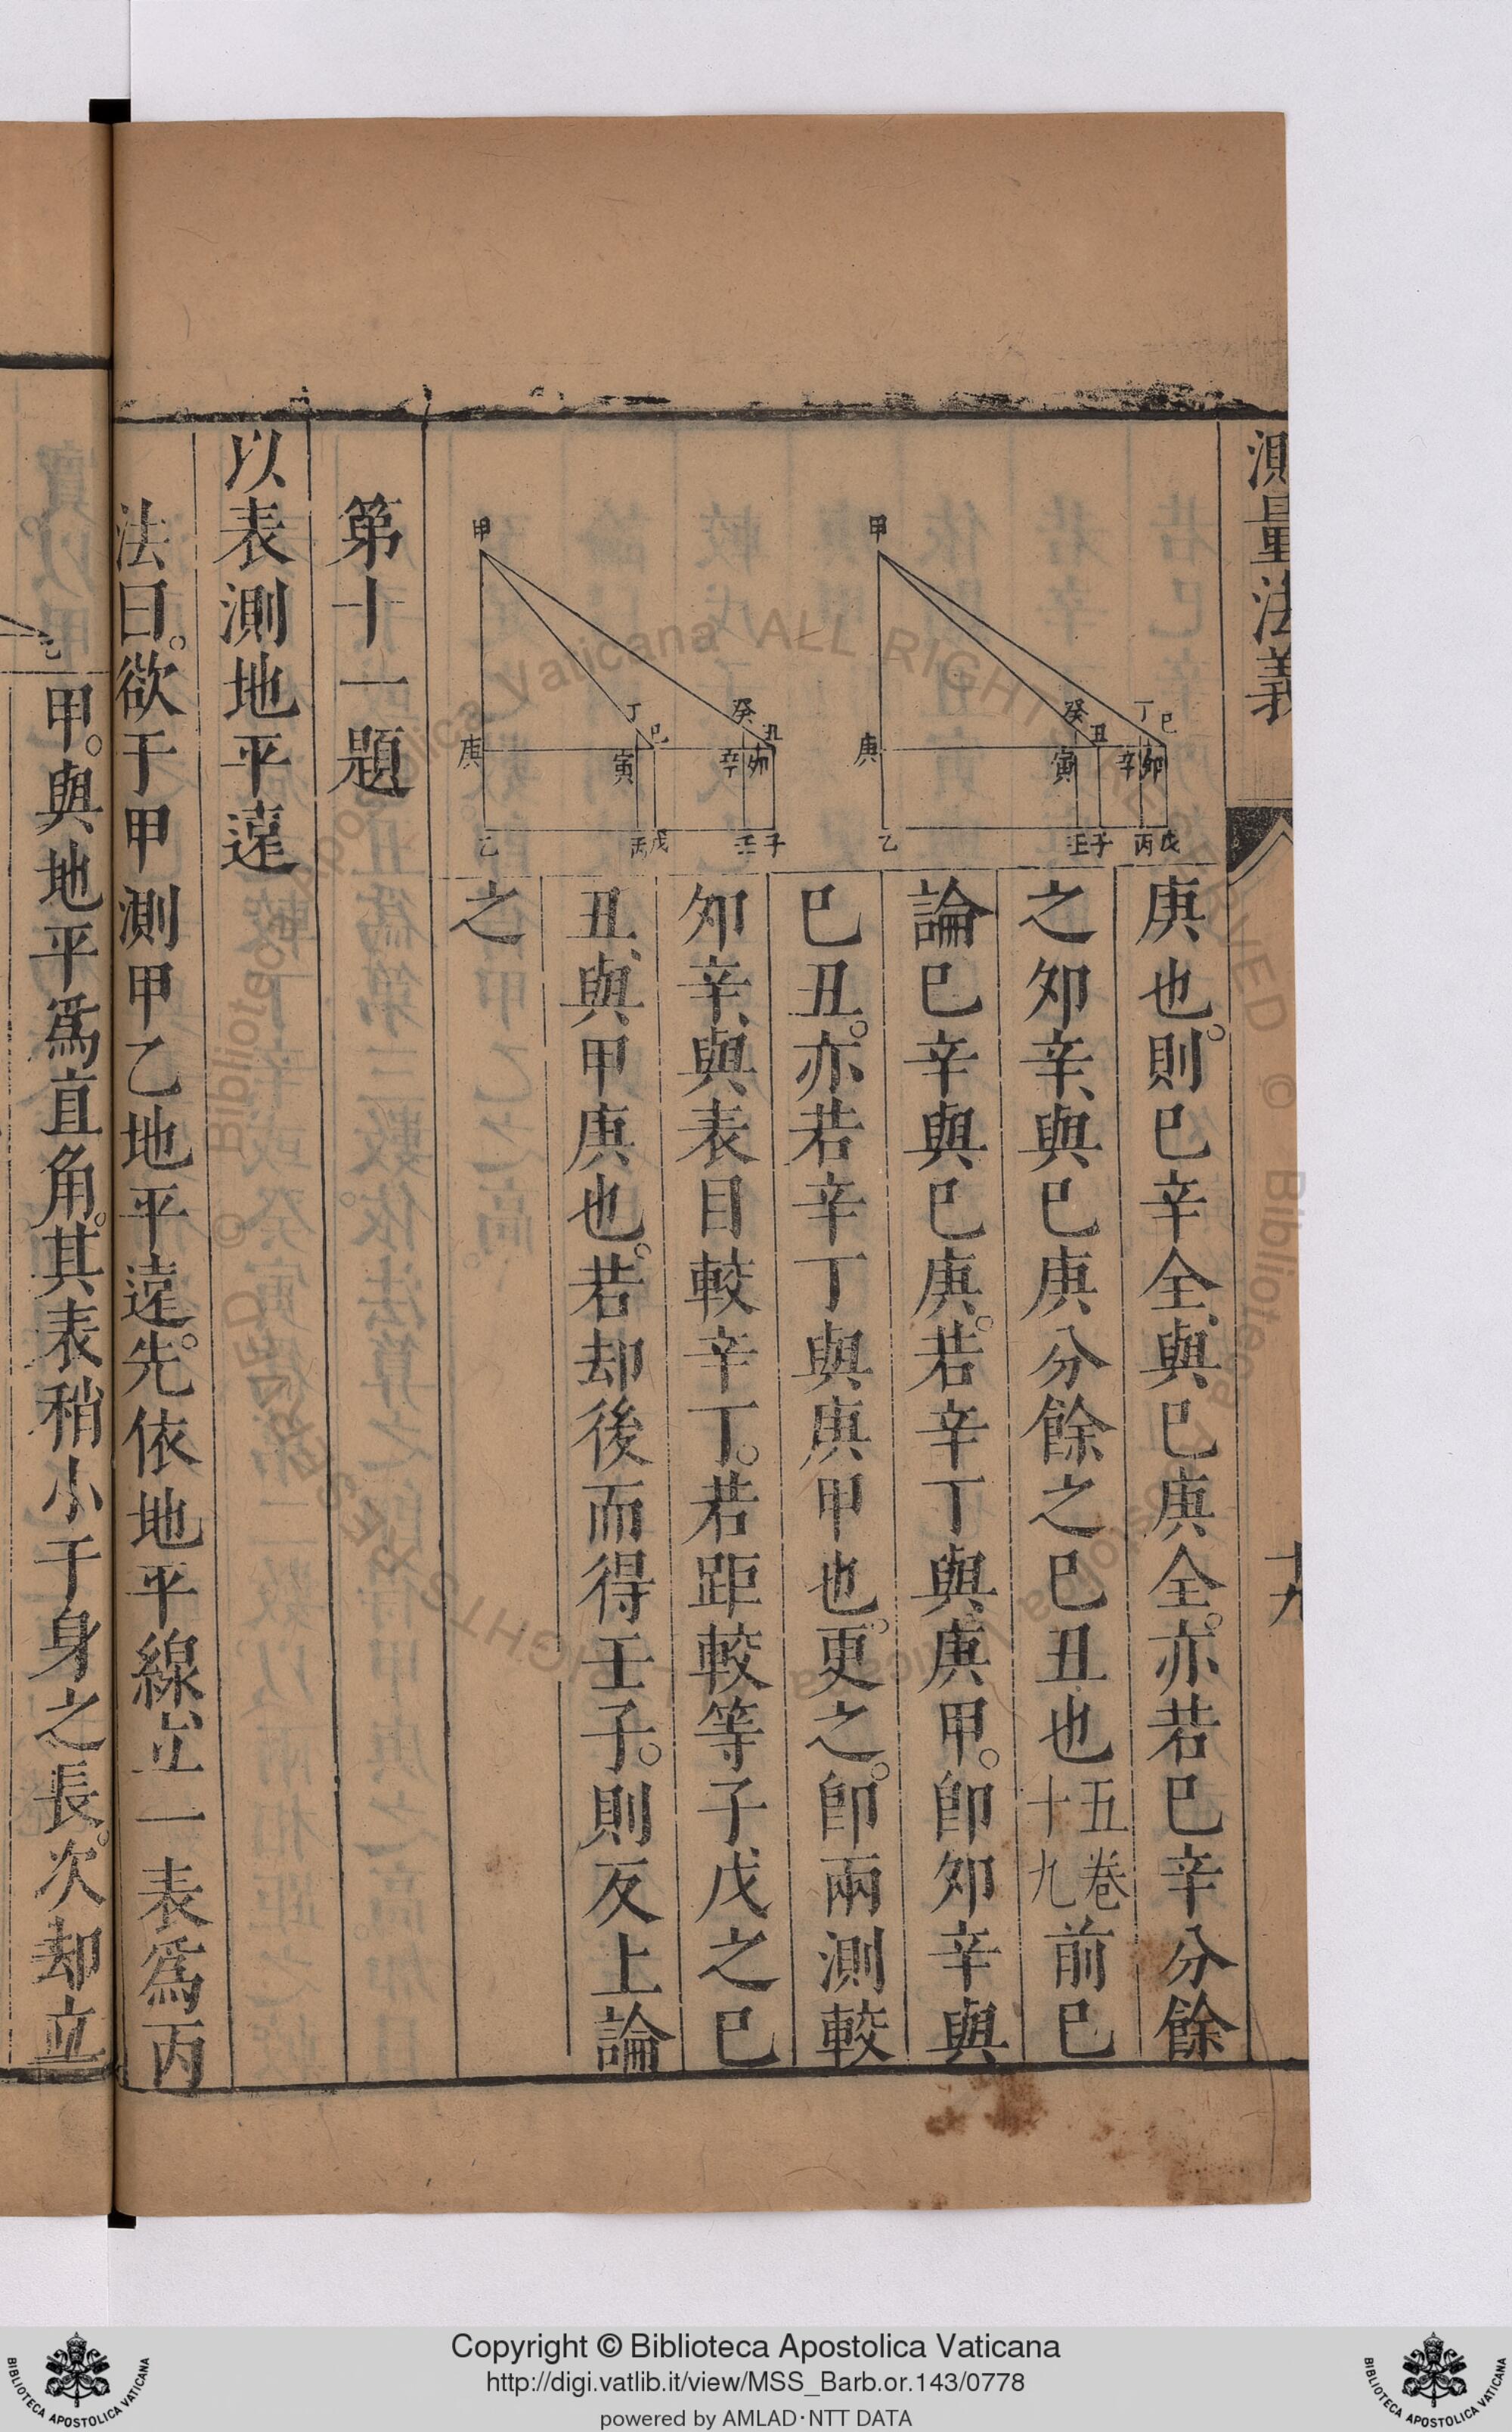 測量法義
十九
庚也。則巳辛全、與巳庚全。亦若巳辛分餘
之夘辛、與巳庚分餘之巳丑也五卷十九前巳
論巳辛與巳庚。若辛丁與庚甲。卽夘辛與
巳丑。亦若辛丁與庚甲也。更之。卽兩測較
夘辛、與表目較辛丁。若距較等子戊之巳
丑、與甲庚也。若却後而得壬子。則反上論
之
甲
庚
乙
癸
丑
寅
壬
子
丁
巳
辛
卯
丙
戊
甲
庚
乙
丁
巳
寅
丙
戊
癸
丑
辛
卯
壬
子
第十一題
以表測地平遠
法曰。欲于甲測甲乙地平遠。先依地平線立一表爲丙
甲。與地平爲直角。其表稍小于身之長。次却立
Copyright © Biblioteca Apostolica Vaticana
http://digi.vatlib.it/view/MSS_Barb.or.143/0778
powered by AMLAD·NTT DATA
BIBLIOTECA APOSTOLICA VATICANA
BIBLIOTECA APOSTOLICA VATICANA